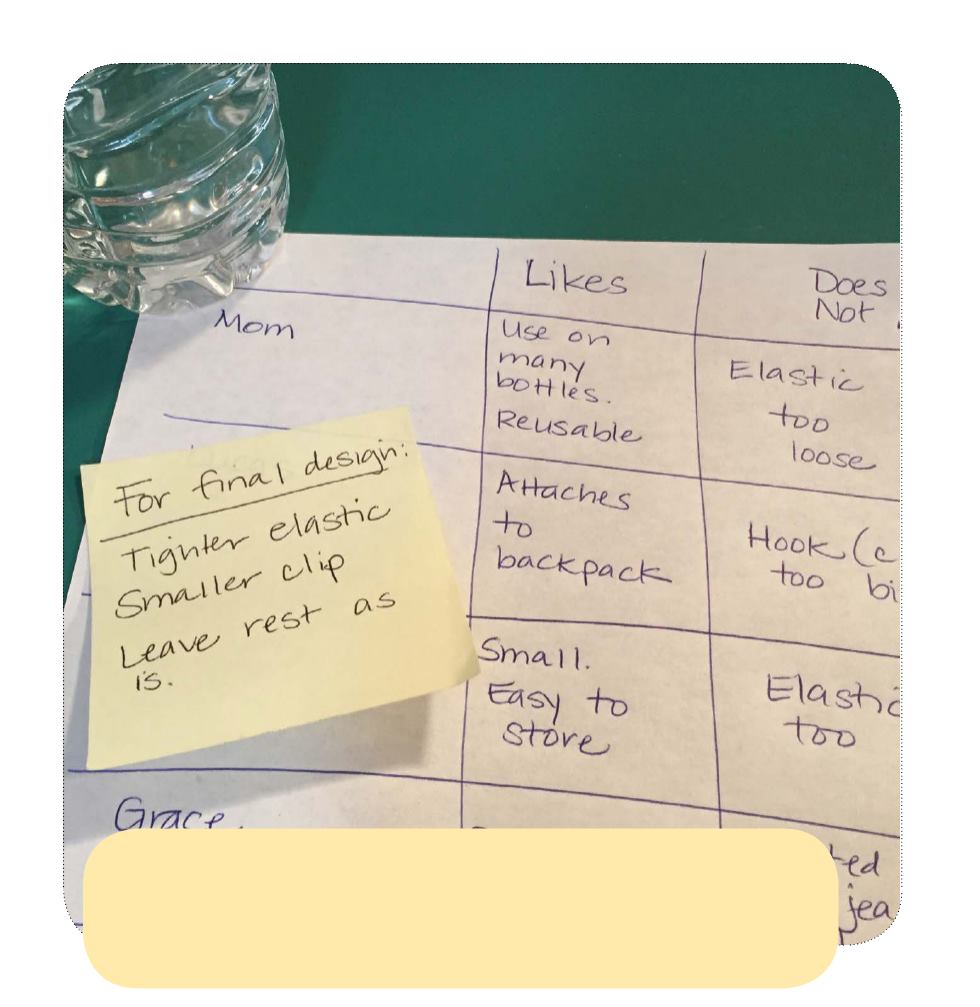 Likes
Does
Not
Mom
Use on
many
bottles.
Reusable
Elastic
too
loose
For final design:
Tighter elastic
Smaller clip
Leave rest as
is.
Attaches
to
backpack
Hook (c
too bi
Small.
Easy to
store
Elastic
too
Grace
ted
jea